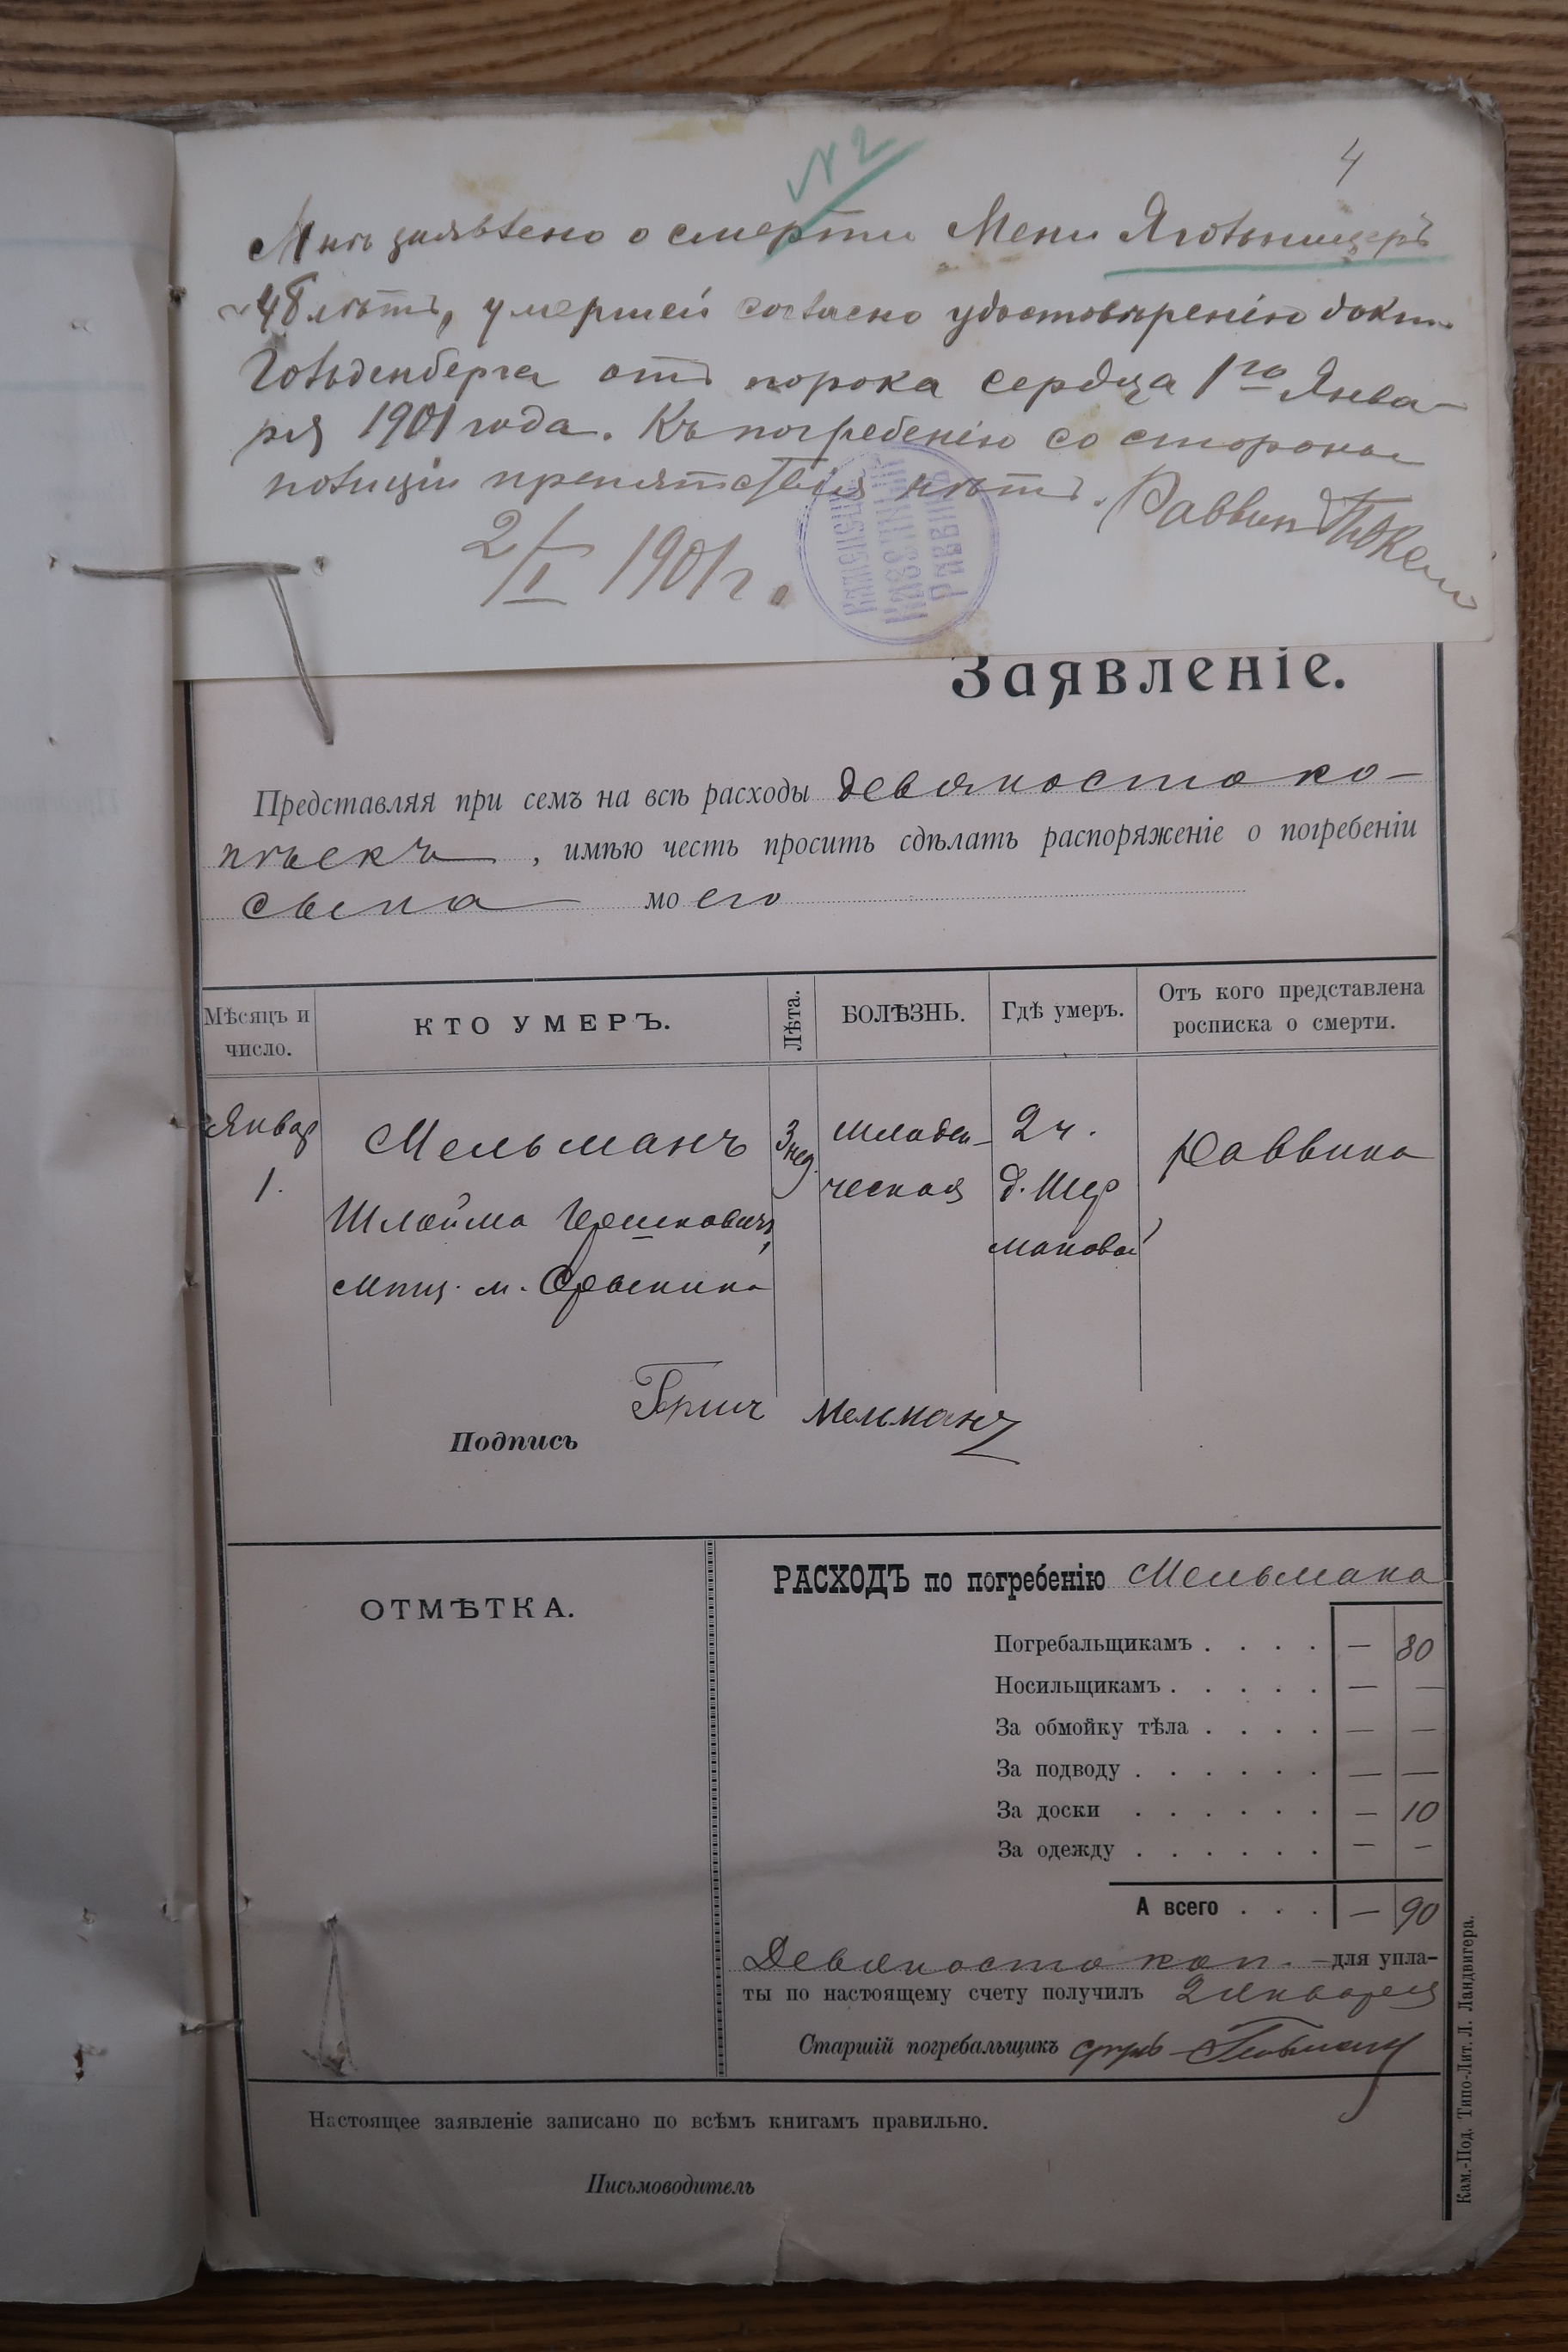 N 2
4
Мнѣ заявлено о смерти Мени Ягольницеръ
48 лѣтъ, умершей согласно удостовѣренію докт.
Гольденберга отъ порока сердца 1го Янва-
ря 1901 года. Къ погребенію со стороны
полиціи препятствія нѣтъ. Раввин
2/I 1901 г.
Раввинъ
Заявленіе.
Представляя при семъ на всѣ расходы девяносто ко-
пѣекъ, имѣю честь просить сдѣлать распоряженіе о погребеніи
сына моего
Мѣсяцъ и число.
КТО УМЕРЪ.
Лѣта.
БОЛѢЗНЬ.
Гдѣ умеръ.
Отъ кого представлена росписка о смерти.
Январ 1.
Мельманъ
Шлойма Гершковичъ,
мѣщ. м. Фрынина
3 нед.
младен-
ческая
2 ч.
д. Шер
мановой
Раввина
Подпись Гершъ Мельманъ
ОТМѢТКА.
РАСХОДЪ по погребенію Мельмана
Погребальщикамъ . . . . — 80
Носильщикамъ . . . . . — —
За обмойку тѣла . . . . — —
За подводу . . . . . . — —
За доски . . . . . . — 10
За одежду . . . . . . — —
А всего . . . — 90
Девяносто коп. — для упла-
ты по настоящему счету получилъ 2 Января
Старшій погребальщикъ
Настоящее заявленіе записано по всѣмъ книгамъ правильно.
Письмоводитель
Кам.-Под. Типо-Лит. Л. Ландвигера.